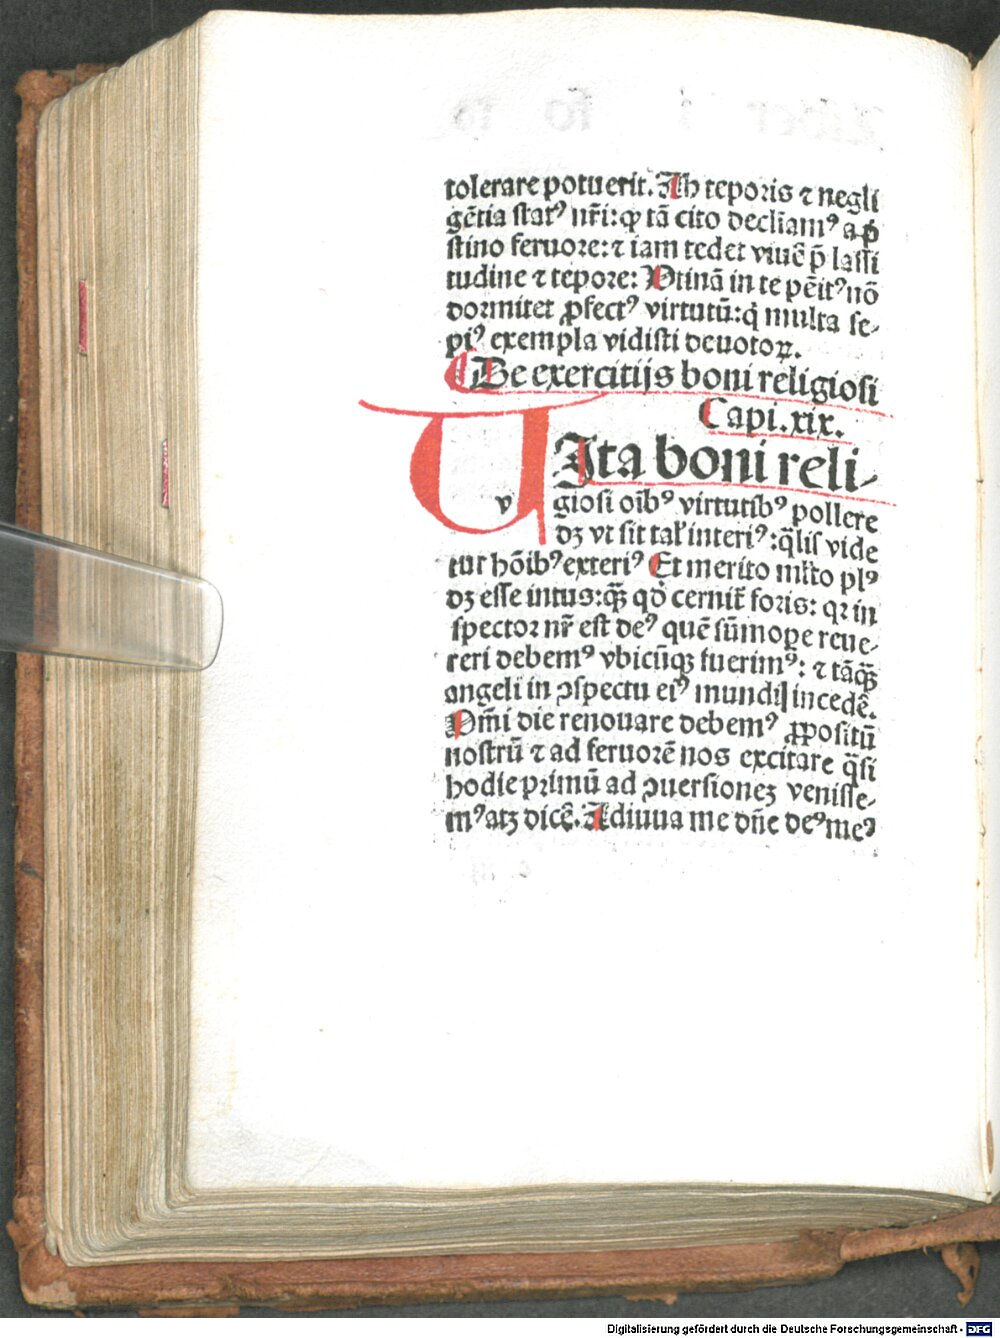 tolerare potuerit. Ah teporis ⁊ negli
gẽtia statꝰ nr̃i: ꝙ tã cito declĩamꝰ a p̃
stino feruore: ⁊ iam tedet viuẽ p̃ lassi
tudine ⁊ tepore: Utinã in te pẽitꝰ nõ
dormitet ꝓfectꝰ virtutũ: q̃ multa se-
piꝰ exempla vidisti deuotoꝝ.
De exercitijs boni religiosi
Capi. xix.
VIta boni reli-
v giosi oĩbꝰ virtutibꝰ pollere
dꝫ vt sit tal' interiꝰ: q̃lis vide
tur hõibꝰ exteriꝰ Et merito ml̃to plꝰ
dꝫ esse intus: ꝙ̃ qď cernit̃ foris: qꝛ in
spector nr̃ est deꝰ quẽ sũmoꝑe reue-
reri debemꝰ vbicũqꝫ fuerimꝰ: ⁊ tãꝙ̃
angeli in ↄspectu eiꝰ mundi incedẽ.
Om̃i die renouare debemꝰ ꝓpositũ
nostrũ ⁊ ad feruorẽ nos excitare q̃si
hodie primũ ad ↄuersionez venisse-
mꝰ atꝫ dicẽ. Adiuua me dñe deꝰ meꝰ
Digitalisierung gefördert durch die Deutsche Forschungsgemeinschaft - DFG